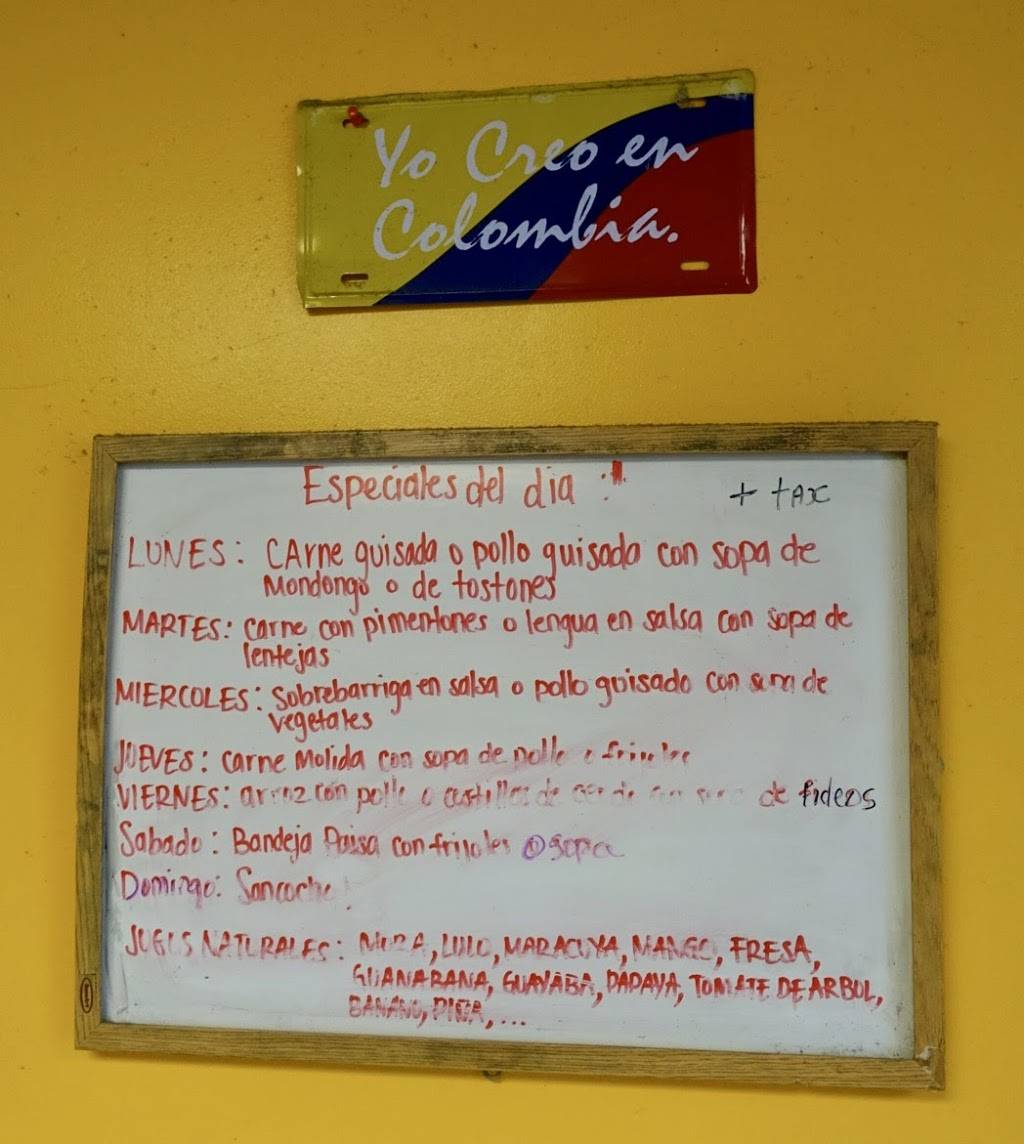 Yo Creo en
Colombia.
Especiales del dia :
+ tAX
LUNES: CArne guisada o pollo guisado con sopa de
Mondongo o de tostones
MARTES: carne con pimentones o lengua en salsa con sopa de
lentejas
MIERCOLES: Sobrebarriga en salsa o pollo guisado con sopa de
vegetales
JUEVES: carne Molida con sopa de pollo o frijoles
VIERNES: arroz con pollo o costillas de cerdo con sopa de fideos
Sabado: Bandeja Paisa con frijoles o sopa
Domingo: Sancocho!
JUGOS NATURALES: MORA, LULO, MARACUYA, MANGO, FRESA,
GUANABANA, GUAYABA, PAPAYA, TOMATE DE ARBOL,
BANANO, PIÑA, ...